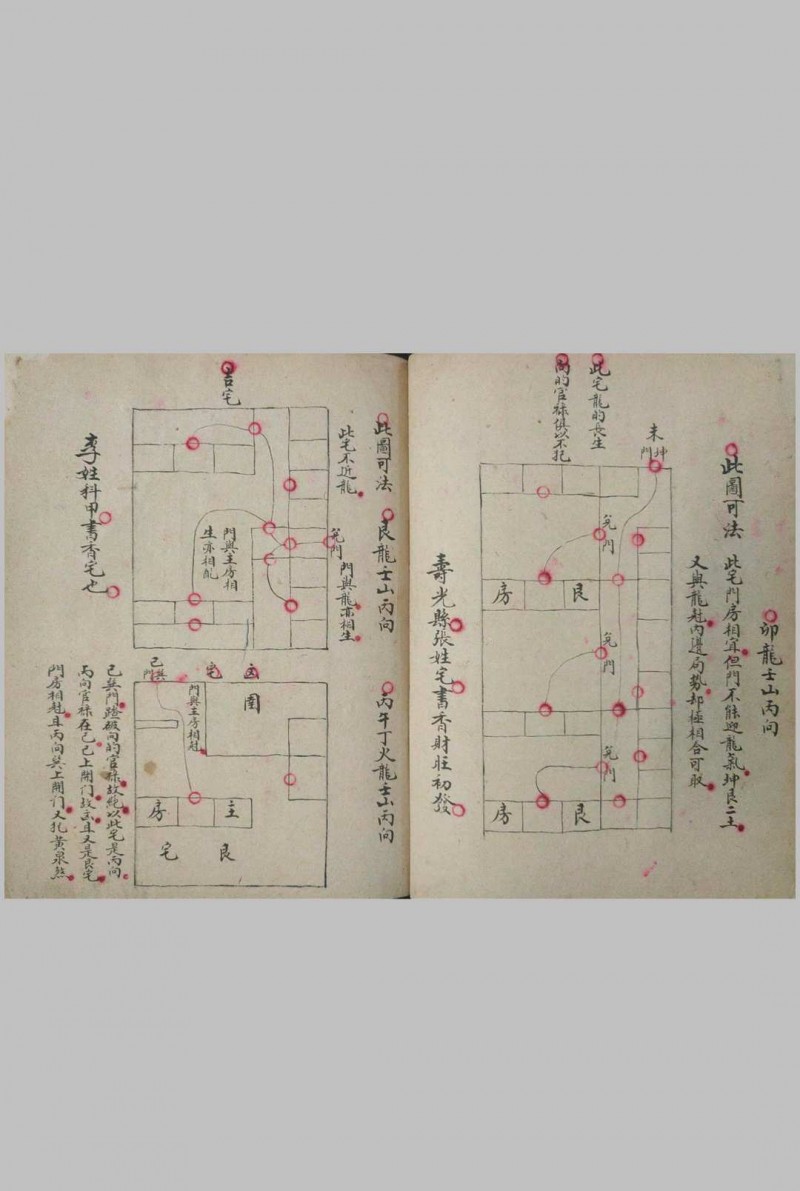 卯龍士山丙向
此圖可法
此宅門房相宜但門不能迎龍氣坤艮二土
又與龍尅內邊局勢却極相合可取
未坤門
此宅龍的長生
向的官祿俱以不犯
兌門
房 艮
兌門
兌門
房 艮
壽光縣張姓宅書香財旺初發
此圖可法
艮龍士山丙向
此宅不近龍
兌門
門與龍亦相生
吉宅
門與主房相
生亦相配
李姓科甲書香宅也
丙午丁火龍士山丙向
凶宅
園
巳巽門
門與主房相尅
房 主
宅 艮
巳巽門蹬破向的官祿故絕以此宅是丙向
丙向官祿在巳巳上開門故云且又是艮宅
門房相尅且丙向巽上開門又犯黃泉煞